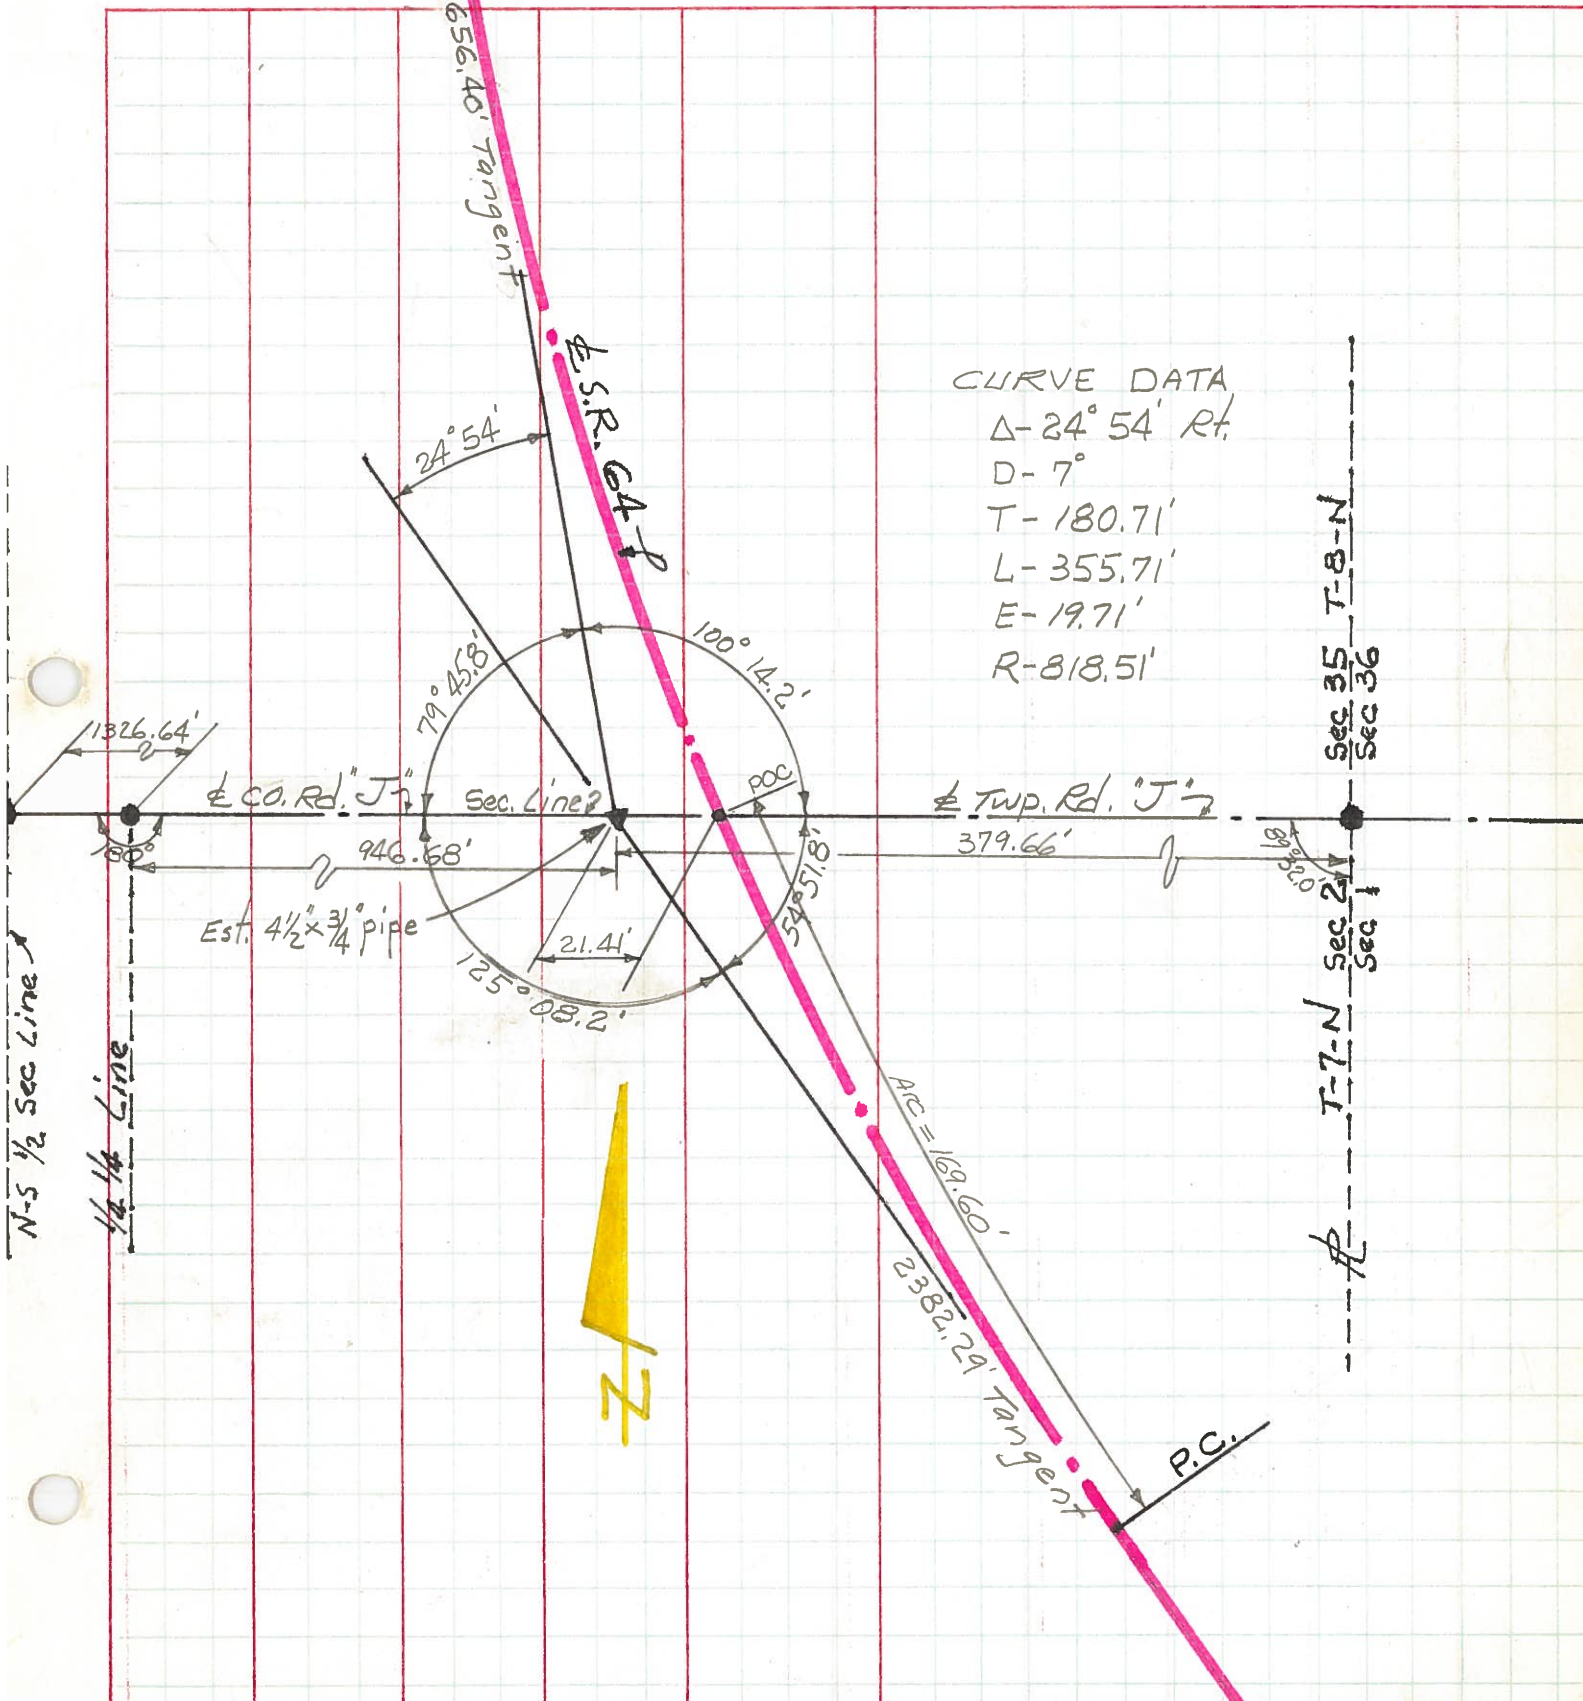 656.40' Tangent
℄ S.R. 64
24° 54'
CURVE DATA
Δ- 24° 54' Rt.
D- 7°
T- 180.71'
L- 355.71'
E- 19.71'
R- 818.51'
79° 45.8'
100° 14.2'
1326.64'
℄ CO. Rd. "J"
Sec. Line
POC
℄ Twp. Rd. "J"
180°
946.68'
379.66'
89° 32.0'
Est. 4½" x ¾" pipe
21.41'
54° 51.8'
125° 08.2'
Sec 35 T-8-N
Sec 36
T-7-N Sec 2
Sec 1
N-S ½ Sec Line
¼ ¼ Line
Arc = 169.60'
2382.29' Tangent
N
P.C.